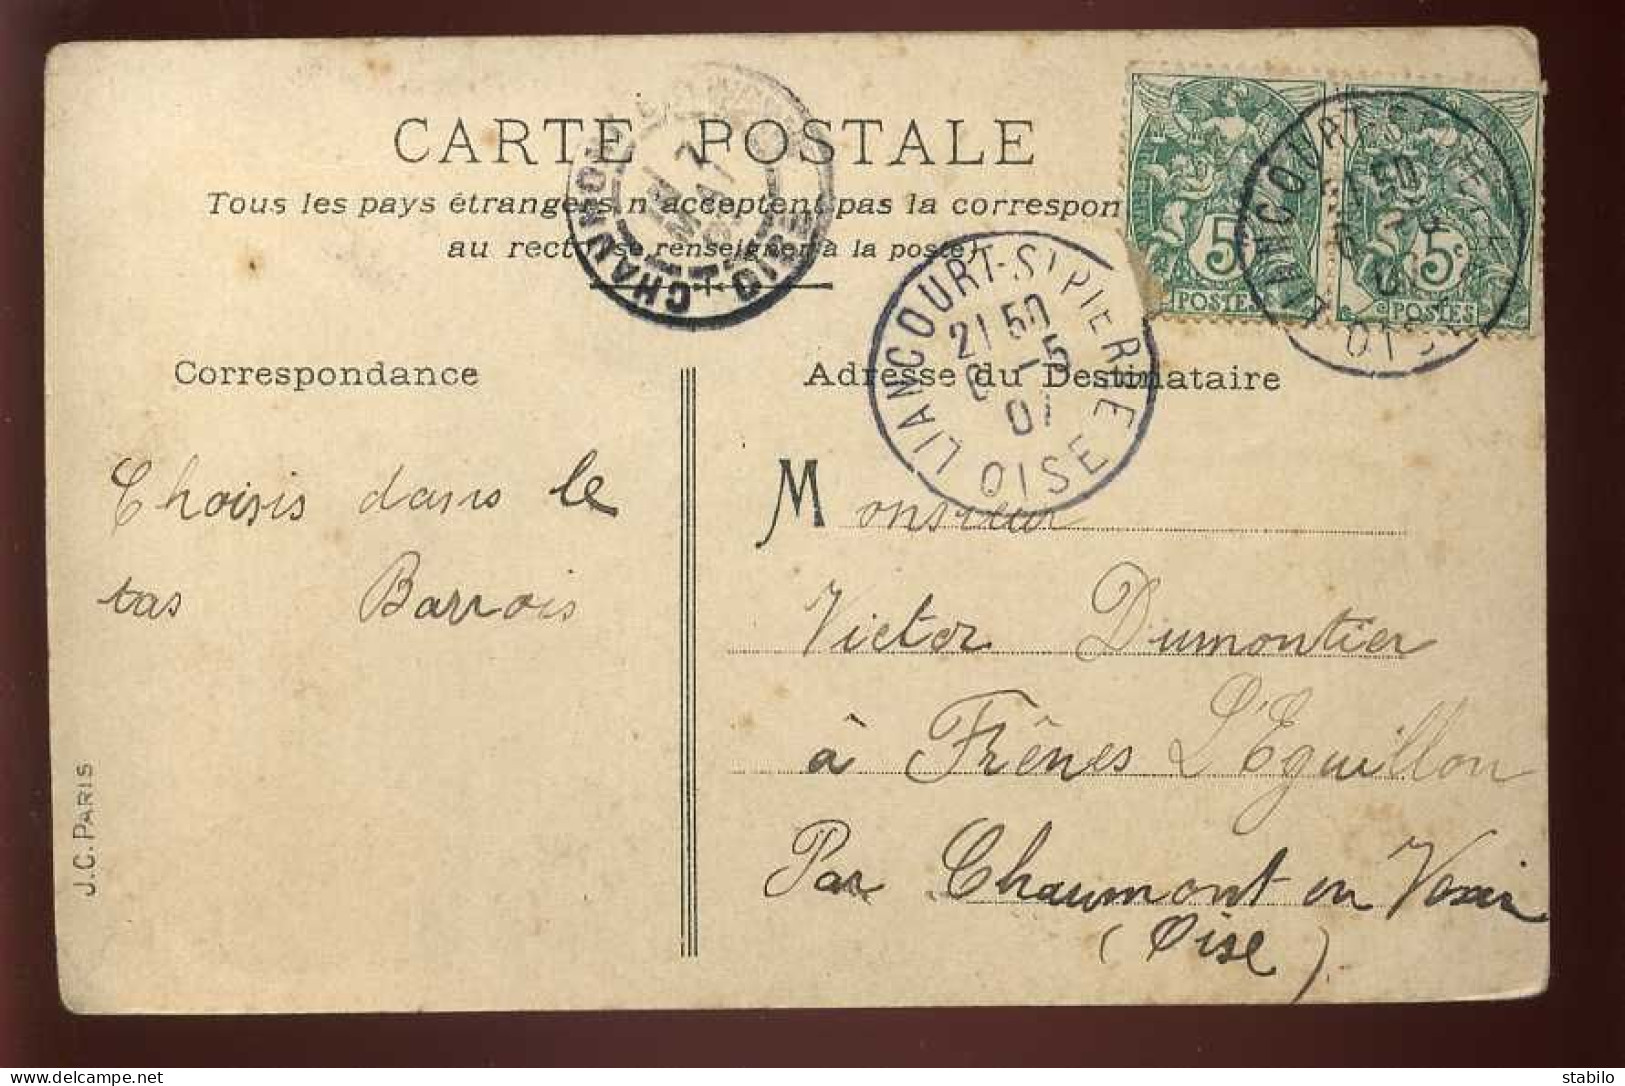 CARTE POSTALE
Tous les pays étrangers n'acceptent pas la correspon
au recto (se renseigner à la poste)
CHAUMONT
OISE
LIANCOURT-St PIERRE
21 50
6 -5
07
OISE
LIANCOURT-St PIERRE
OISE
5c
POSTES
5c
POSTES
Correspondance
Adresse du Destinataire
Choisis dans le
tas Barrois
Monsieur
Victor Dumontier
à Frênes L'Eguillon
Par Chaumont en Vexin
(Oise)
J.C. PARIS
stabilo
delcampe.net